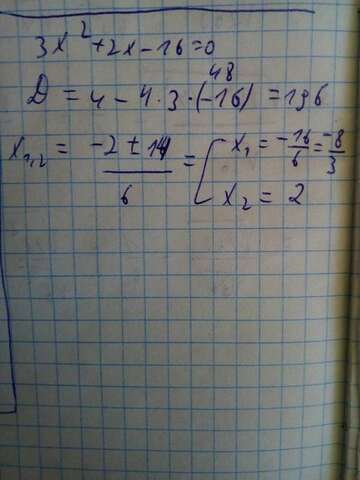 3x²+2x-16=0
48
D = 4 - 4·3·(-16) = 196
x₁,₂ = (-2 ± 14)/6 = [ x₁ = -16/6 = -8/3
x₂ = 2